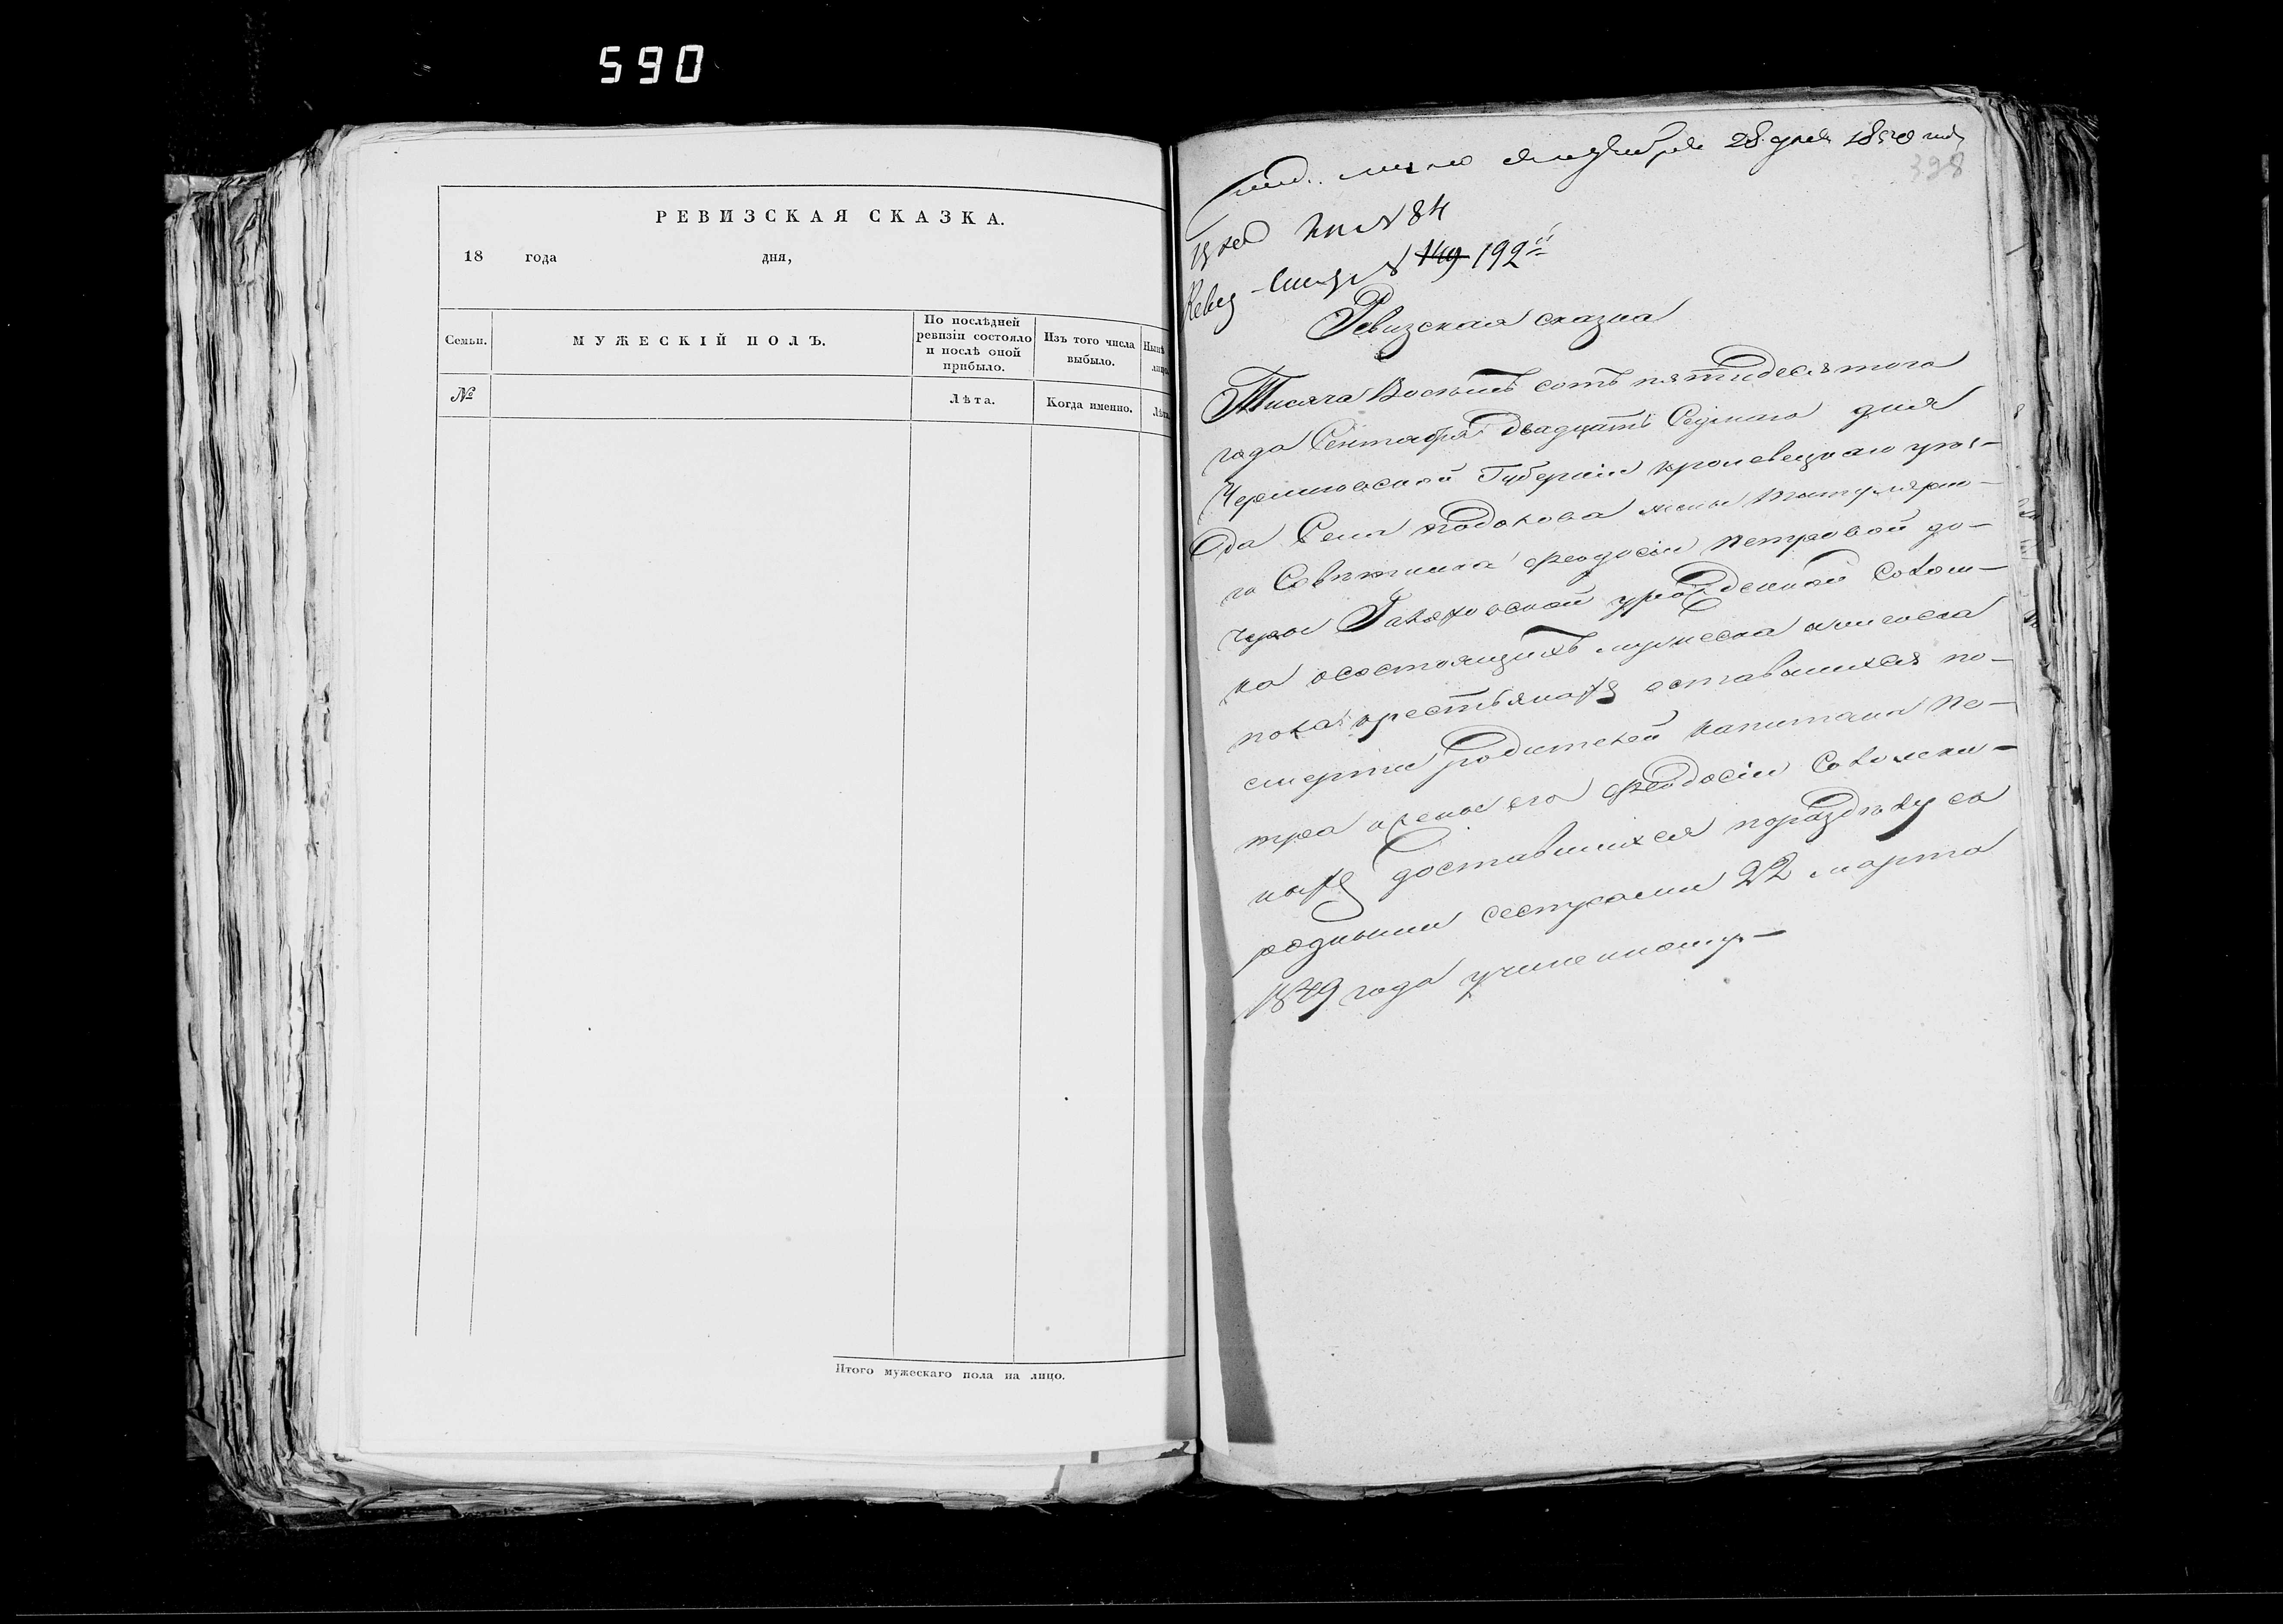 590
РЕВИЗСКАЯ СКАЗКА.
18 года дня,
Семьи.
МУЖЕСКІЙ ПОЛЪ.
По послѣдней ревизіи состояло и послѣ оной прибыло.
Изъ того числа выбыло.
№
Лѣта.
Когда именно.
Лѣта
Итого мужескаго пола на лицо.
28 дня 1850 года
398
№ 84
№ 149 192
Ревизская сказка
Тисяча Восемь сотъ пятидесятого
года Сентября двадцать Седмаго дня
Черниговской Губерніи кролевецкаго уѣз-
да Села подолова жены титулярно-
го Совѣтника феодосіи петровой до-
чери Галяховской урожденной Сокол-
ка осостоящихъ мужеска иженска
пола крестьянахъ оставшихся по-
смерти родителей капитана пе-
тра ижены его феодосіи Соколски-
ныхъ доставшихся поразделу съ
родными сестрами 22 марта
1849 года учиненному.—